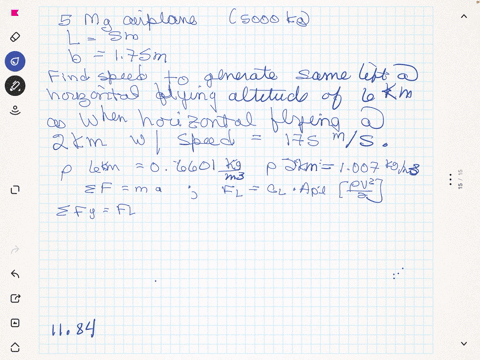 5 Mg airplane (5000 kg)
L = 5m
b = 1.75m
Find speed to generate same lift @
horizontal flying altitude of 6 Km
as when horizontal flying @
2km w/ speed = 175 m/s.
ρ 6km = 0.6601 kg/m3 ρ 2km = 1.007 kg/m3
ΣF = ma ; FL = CL · Apl [ρV²/2]
ΣFy = FL
11.84
15 / 15